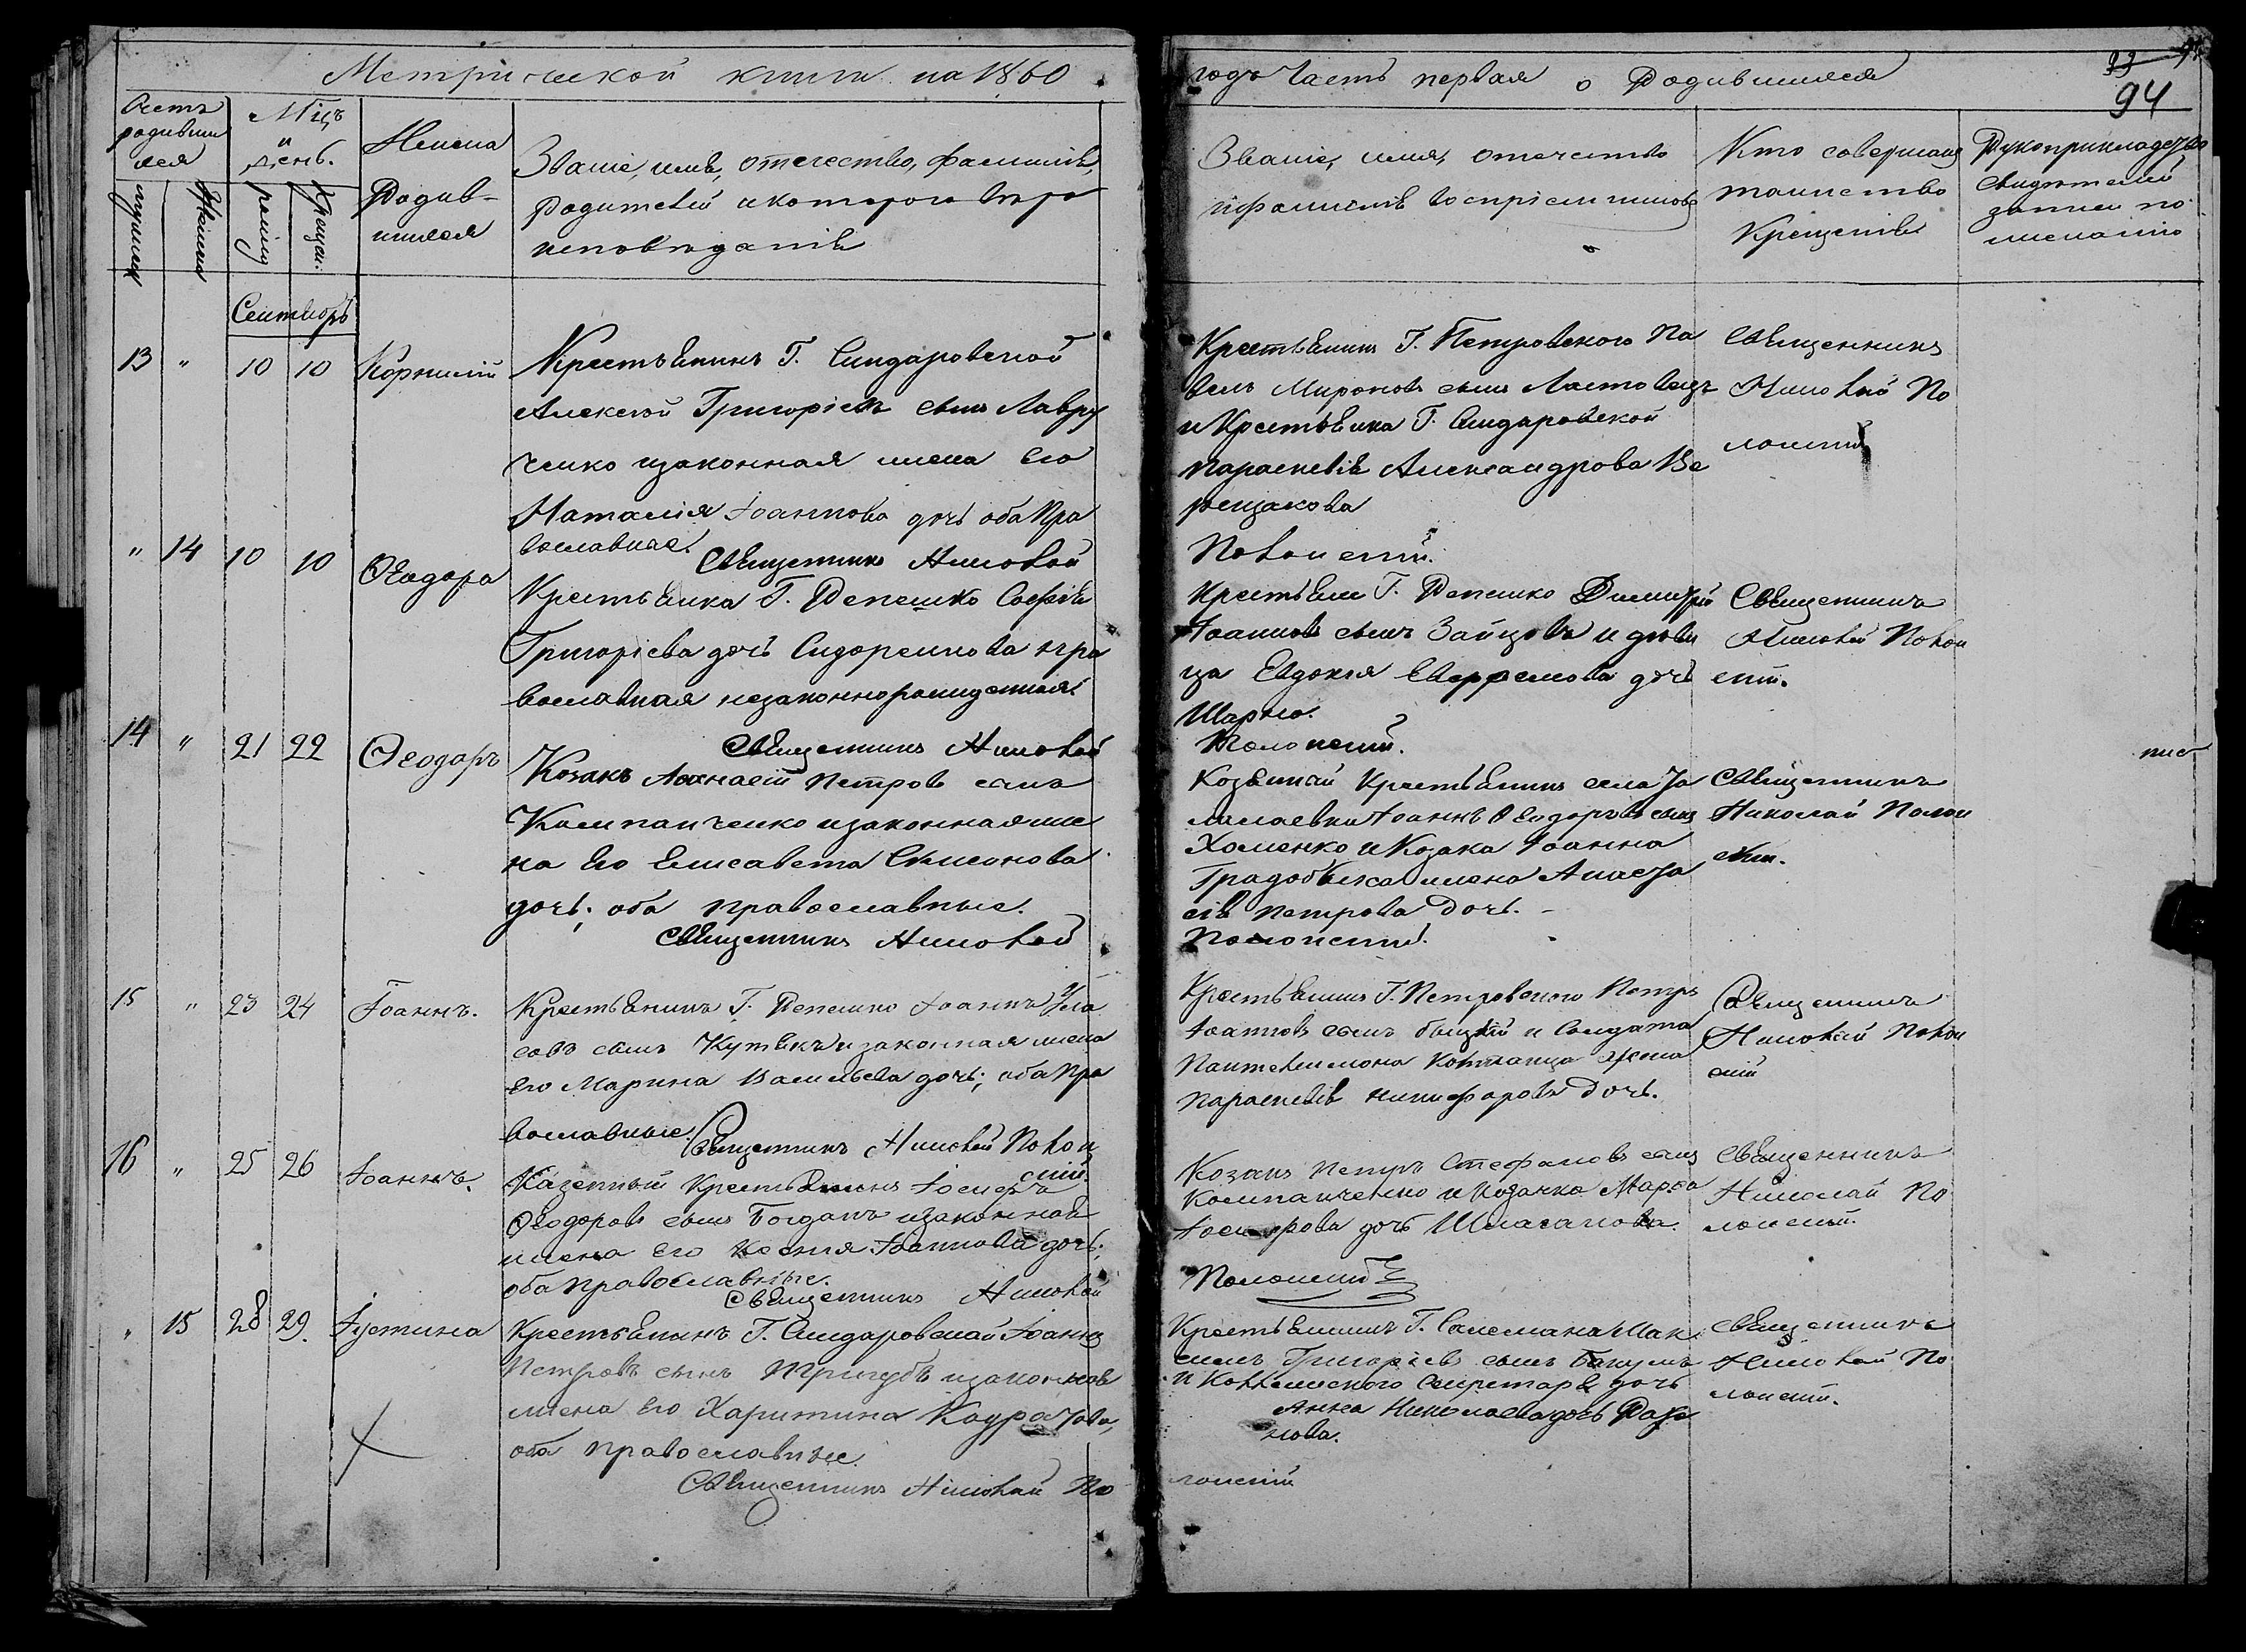 Метрической книги на 1860
годъ Часть первая о Родившихся
94
Счетъ
родивши
хся
Мцъ
и
день.
Имена
Родив-
шихся
Званіе, имя, отечество, фамилія,
Родителей и котораго вѣро
исповѣданія
Званіе, имя, отечество
и фамилія воспріемниковъ
Кто совершалъ
таинство
Крещенія
Рукоприкладство
свидѣтелей
записи по
желанію
Сентябрь
13 " 10 10 Корнилій
Крестьянинъ Г. Синдаровской
Алексѣй Григоріевъ сынъ Лавру
ченко и законная жена его
Наталія Іоаннова дочь оба Пра
вославные.
Священникъ Николай
Крестьянинъ Г. Петровского Па
велъ Мироновъ сынъ Ластовецъ
и Крестьянка Г. Синдаровской
Параскевія Александрова Ве
рещакова
Полонскій.
Священникъ
Николай По
лонскій
" 14 10 10 Ѳеодора
Крестьянка Г. Репешко Софія
Григоріева дочь Сидоренкова пра
вославная незаконнорожденная.
Священникъ Николай
Крестьянин Г. Репешко Димитрій
Іоанновъ сынъ Зайцовъ и дѣви
ца Евдокія Евфремова дочь
Шарко.
Полонскій.
Священникъ
Николай Полон
скій.
14 " 21 22 Ѳеодоръ
Козакъ Аѳанасій Петровъ сынъ
Компанченко и законная же
на его Елисавета Симонова
дочь; оба православные.
Священникъ Николай
Козенный Крестьянинъ села
Іоаннъ Ѳеодоровъ сынъ
Хоменко и Козака Іоанна
жена Анаста
сія Петрова дочь.
Полонскій.
Священникъ
Николай Полон
скій.
15 " 23 24 Іоаннъ.
Крестьянинъ Г. Репешко Іоаннъ Ула
совъ сынъ и законная жена
его Марина Васильева дочь; оба Пра
вославные.
Священникъ Николай Полон
скій.
Крестьянинъ Г. Петровского Петръ
Іоанновъ сынъ и Солдата
Пантелеимона жена
Параскевія Никифорова дочь.
Священникъ
Николай Полон
скій
16 " 25 26 Іоаннъ.
Казенный Крестьянинъ Іосифъ
Ѳеодоровъ сынъ Богданъ и законная
жена его Ксенія Іоаннова дочь;
оба православные.
Священникъ Николай
Козакъ Петръ Стефановъ сынъ
Компанченко и козачка Марѳа
Іосифова дочь
Полонскій
Священникъ
Николай По
лонскій.
" 15 28 29. Іустина
Крестьянинъ Г. Синдаровской Іоаннъ
Петровъ сынъ Тригубъ и законная
жена его Харитина
оба православные.
Священникъ Николай По
Крестьянинъ Г. Мак
симъ Григоріевъ сынъ
и Коллежского Секретаря дочь
Анна Николаева дочь
лонскій
Священникъ
Николай По
лонскій.